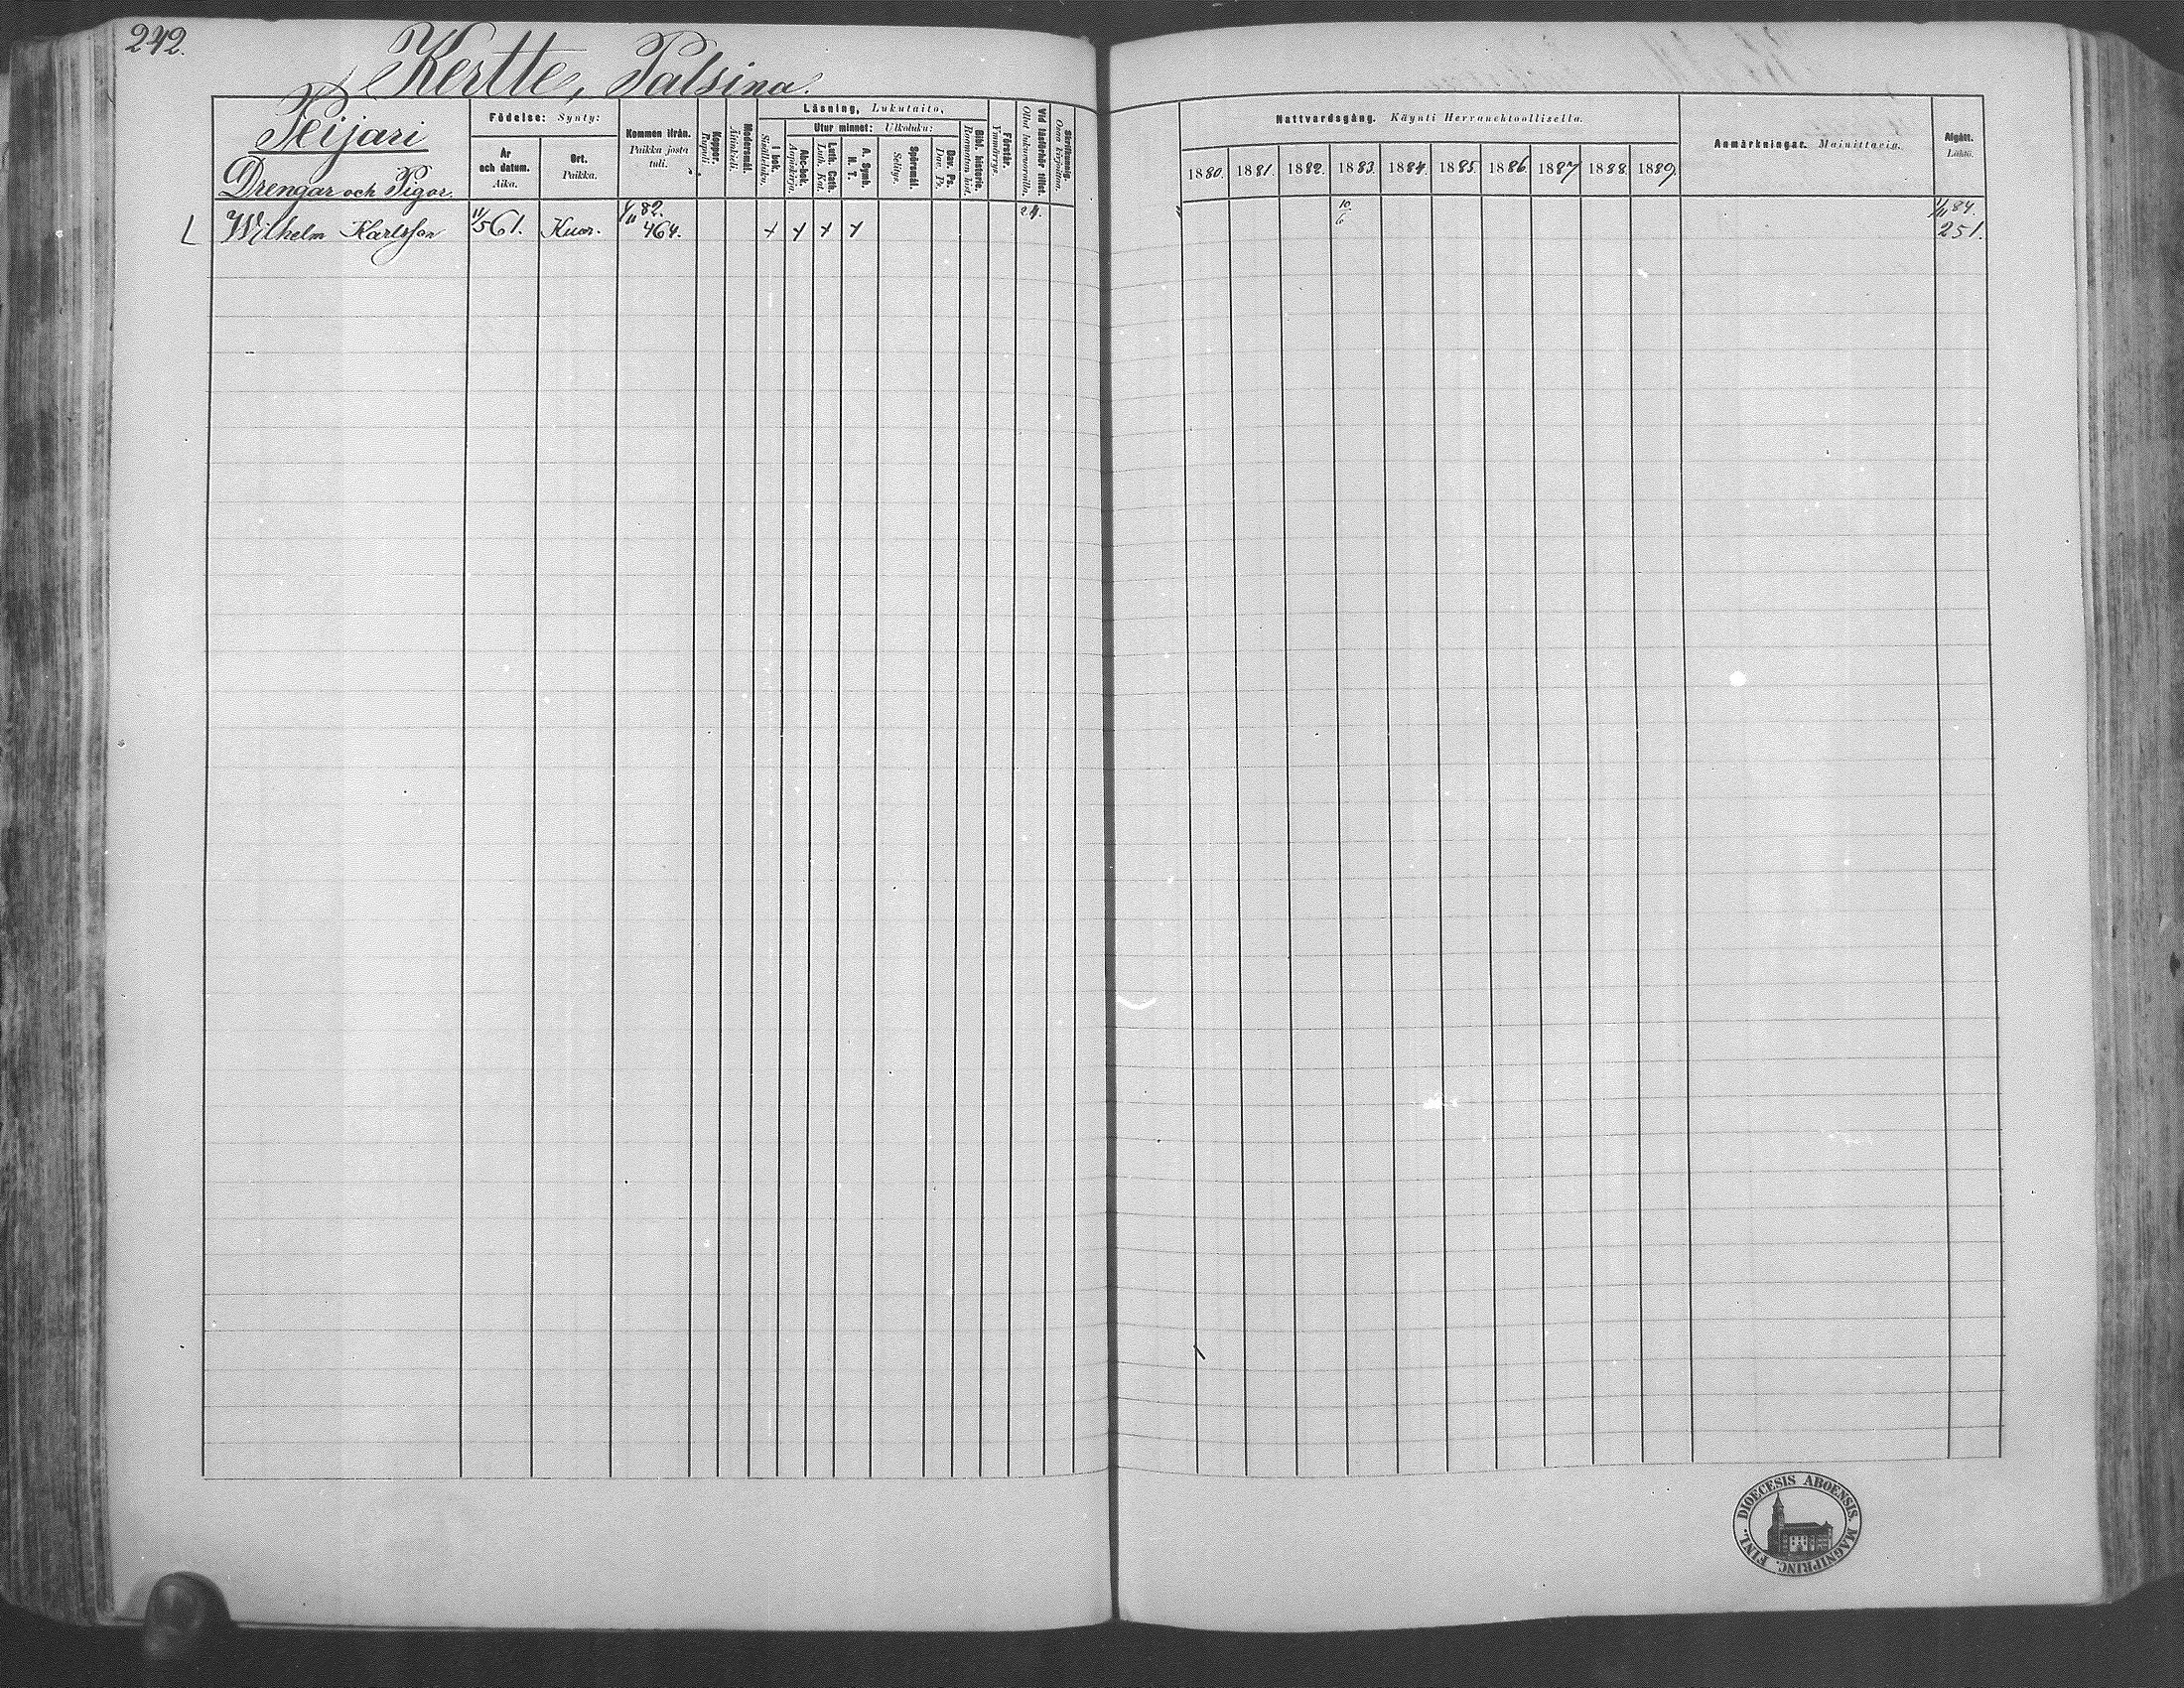 242.
Kertte, Palsina.
Peijari
Drengar och Pigor.
Födelse: Synty:
År och datum. Aika.
Ort. Paikka.
Kommen ifrån. Paikka josta tuli.
Koppor. Rupuli.
Modersmål. Äitinkieli.
Läsning, Lukutaito,
I bok. Sisältluku.
Utur minnet: Ulkoluku:
Abc-bok. Aapiskirja.
Luth. Cath. Luth. Kat.
A. Symb. H. T.
Spörsmål. Selitys.
Dav. Ps. Dav. Ps.
Bibl. historie. Raamatun hist.
Förstår. Ymmärrys.
Vid läsförhör tillst. Ollut lukuvuoroilla.
Skrifkunnig. Osaa kirjoittaa.
Nattvardsgång. Käynti Herranehtoollisella.
1880. 1881. 1882. 1883. 1884. 1885. 1886. 1887. 1888. 1889.
Anmärkningar. Mainittavia.
Afgått. Lähtö.
L Wilhelm Karlsson 11/5 61. Kuor. 1/11 82. 464. x x x x 24. 10/6 1/11 84. 251.
DIOECESIS ABOENSIS. MAGNIPRINC. FINL.